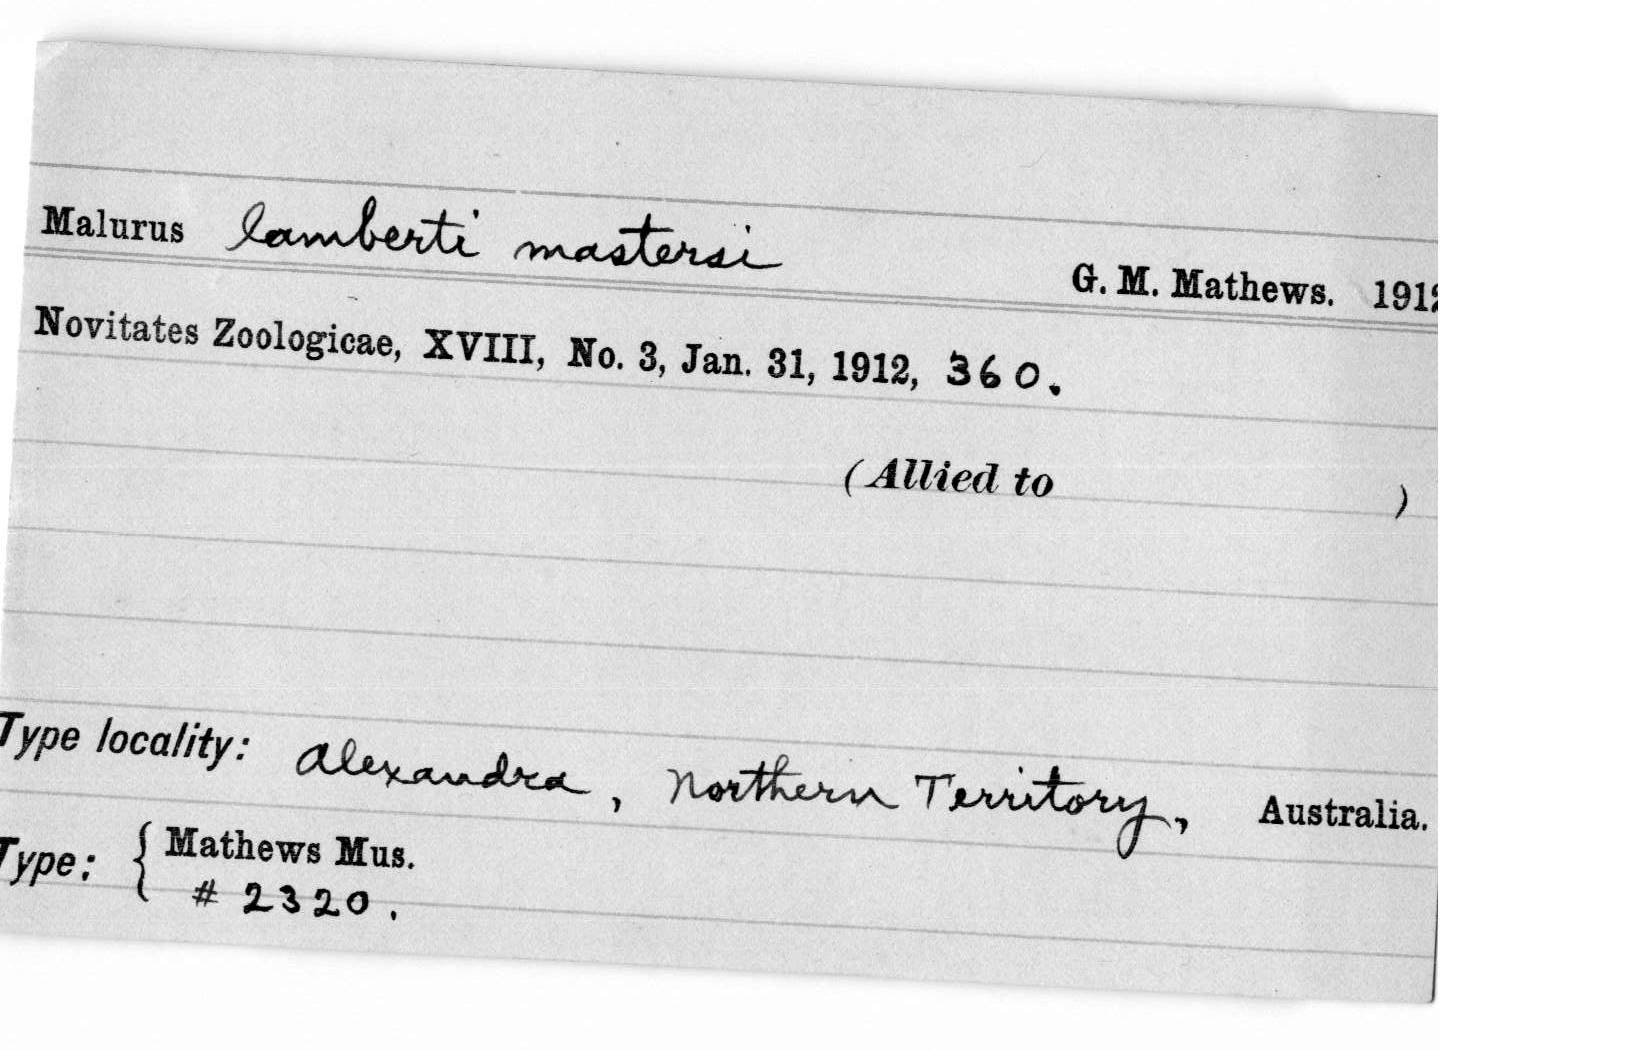 Malurus lamberti mastersi
G. M. Mathews. 1912
Novitates Zoologicae, XVIII, No. 3, Jan. 31, 1912, 360.
(Allied to )
Type locality: Alexandra, Northern Territory, Australia.
Type: { Mathews Mus.
# 2320.